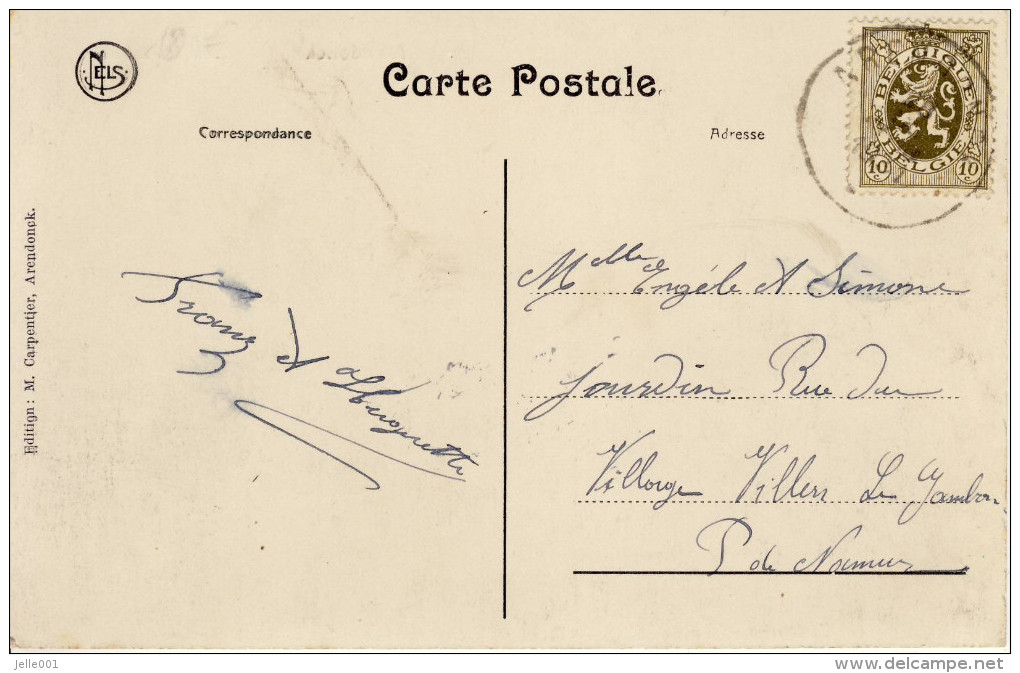 NELS
Carte Postale
Correspondance
Adresse
BELGIQUE
BELGIE
10 c 10 c
Edition : M. Carpentier, Arendonck.
Franz et Huguette
Melle Engéle et Simone
Jourdin Rue du
Village Villers Le Gambon
P de Namur
jelle001
www.delcampe.net